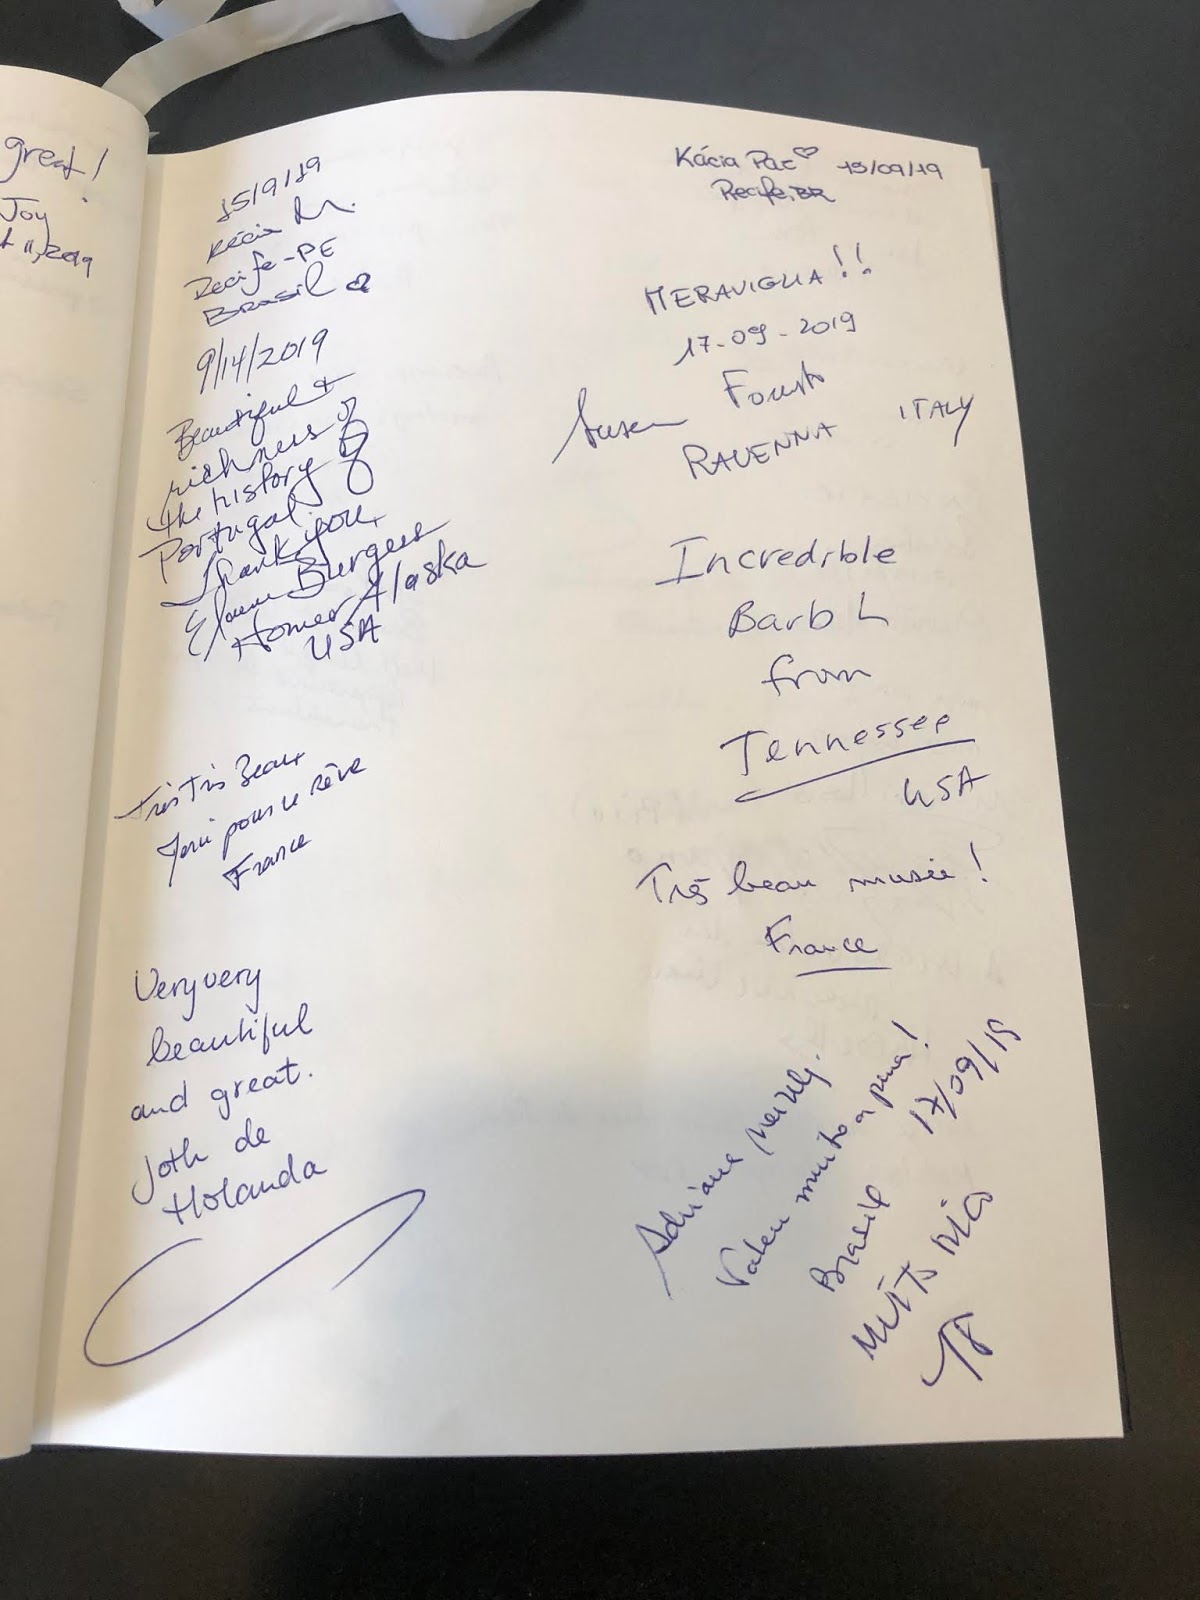 great!
Joy
11, 2019
15/9/19
Kécia
Recife-PE
Brasil
9/14/2019
Beautiful +
richness of
the history of
Portugal.
Thank you,
Burgess
Homer Alaska
USA
Très Très Beaux
pour le Rêve
France
Very very
beautiful
and great.
Joth de
Holanda
Kácia Pac 15/09/19
Recife, BR
MERAVIGLIA!!
17-09-2019
Susan
RAVENNA ITALY
Incredible
Barb L
from
Tennessee
USA
Très beau musée!
France
Adriana
Valeu muito a pena!
Brasil 17/09/19